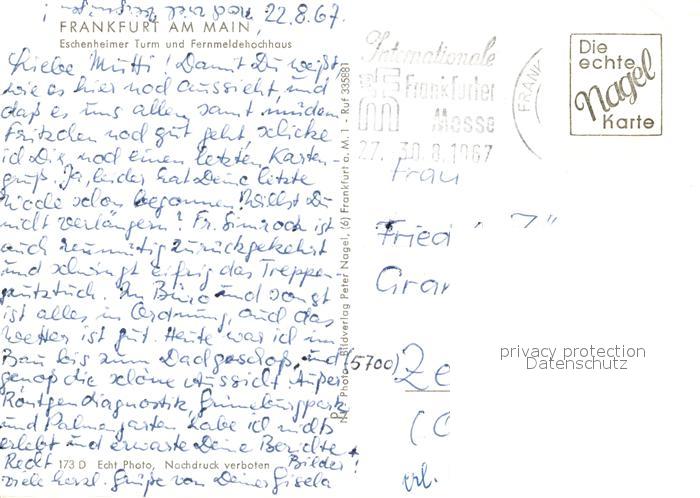 22.8.67.
FRANKFURT AM MAIN
Eschenheimer Turm und Fernmeldehochhaus
Liebe Mutti! Damit Du weißt
wie es hier noch aussieht, und
daß es uns allen, samt müdem
Fritzchen noch gut geht, schicke
ich Dir noch einen letzten Karten-
gruß. Ja, leider hat Deine letzte
Woche schon begonnen! Willst Du
nicht verlängern? Fr. Simrock ist
auch reumütig zurückgekehrt
und schwingt eifrig das Treppen-
putztuch. Im Büro und sonst
ist alles in Ordnung, auch das
Wetter ist gut. Heute war ich im
Bau bis zum Dachgeschoß, und
genoß die schöne Aussicht. Außer
Röntgendiagnostik, Grüneburgpark
und Palmengarten habe ich nichts
erlebt und erwarte Deine Berichte +
Recht Bilder!
173 D Echt Photo, Nachdruck verboten
viele herzl. Grüße von Deiner Gisela
Photo- Bildverlag Peter Nagel, (6) Frankfurt a. M. 1 - Ruf 335881
Internationale
Frankfurter
Messe
27. 30.8.1967
FRANK
Die
echte
Nagel
Karte
Frau
Fried
Gran
(5700) Ze
privacy protection
Datenschutz